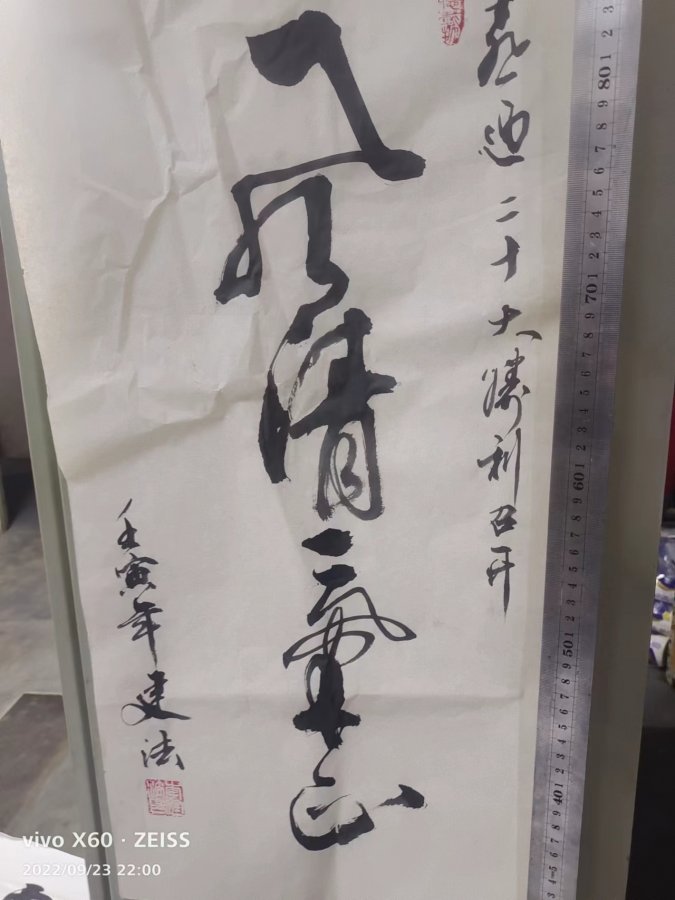 喜迎二十大勝利召开
风清氣正
壬寅年建法
vivo X60 · ZEISS
2022/09/23 22:00